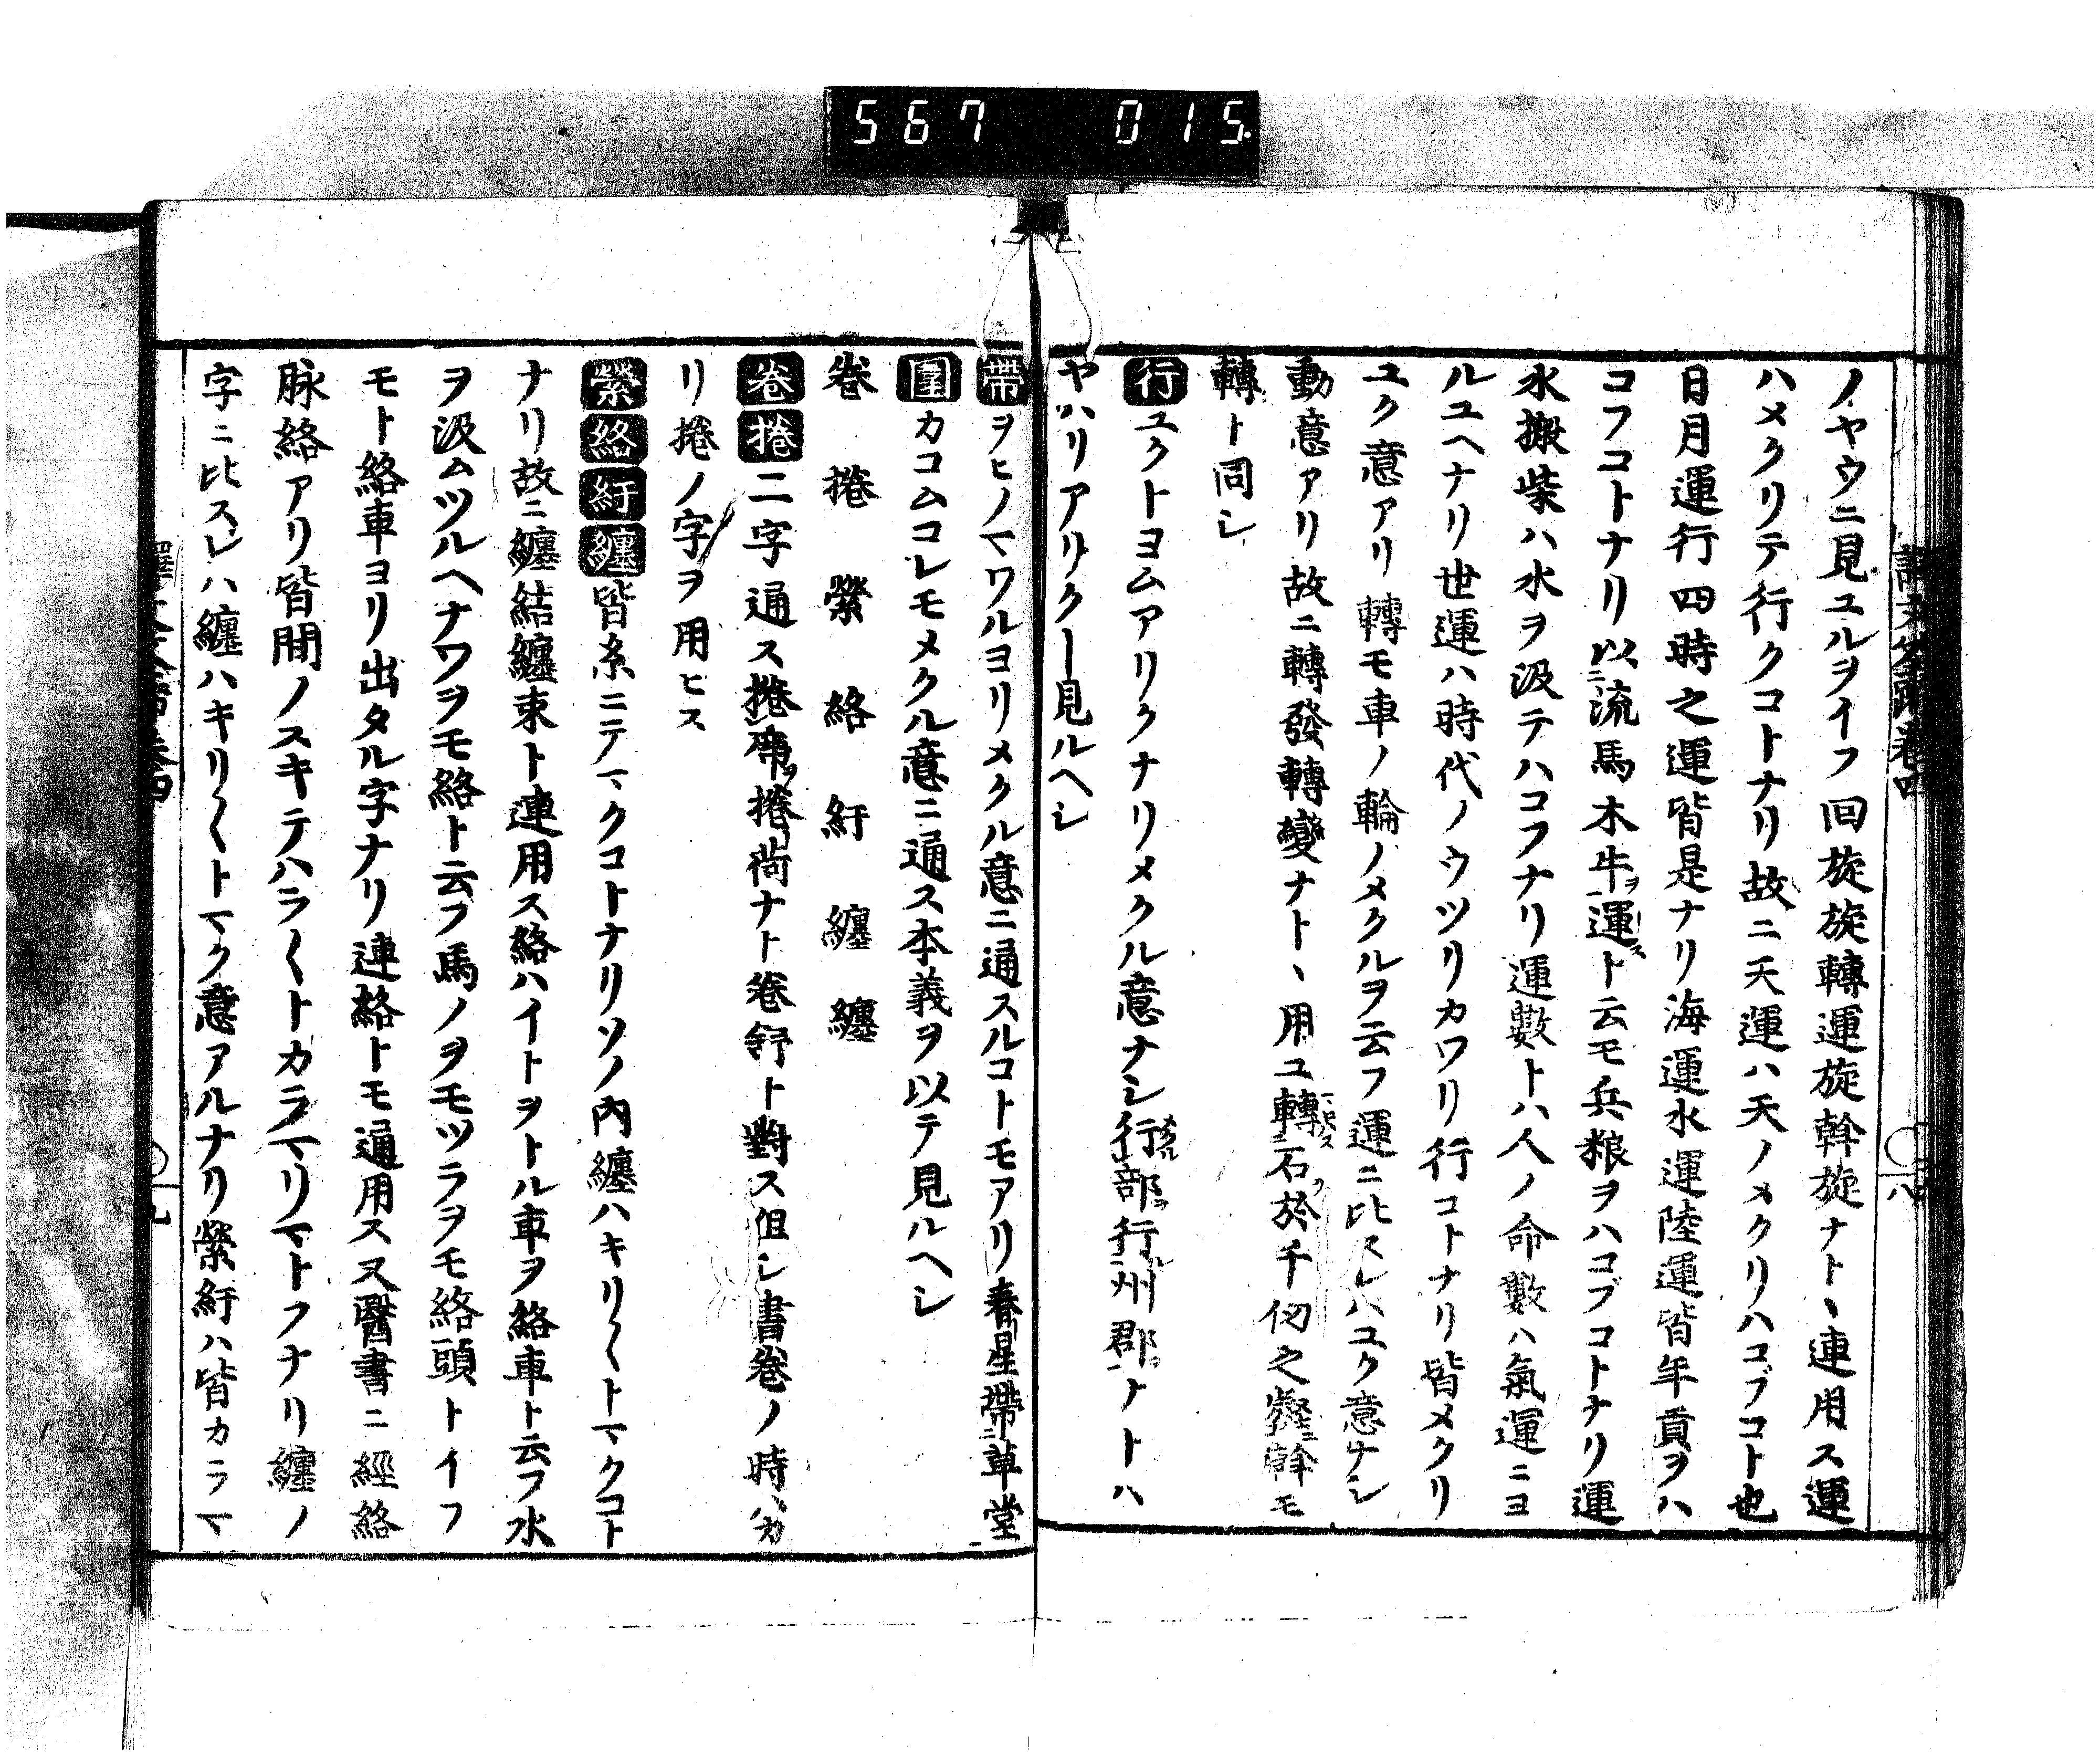 567 015
ノヤウニ見ユルヲイフ回旋旋轉運旋斡旋ナト、連用ス運
ハメクリテ行クコトナリ故ニ天運ハ天ノメクリハコブコト也
日月運行四時之運皆是ナリ海運水運陸運皆年貢ヲハ
コフコトナリ以流馬木牛運ト云モ兵粮ヲハコブコトナリ運
水搬柴ハ水ヲ汲テハコフナリ運數トハ人ノ命數ハ氣運ニヨ
ルユヘナリ世運ハ時代ノウツリカワリ行コトナリ皆メクリ
ユク意アリ轉モ車ノ輪ノメクルヲ云フ運ニ比スレハユク意ナシ
動意アリ故ニ轉發轉變ナト、用ユ轉石於千仞之 斡モ
轉ト同シ
行ユクトヨムアリクナリメクル意ナシ行部行州郡ナトハ
ヤハリアリクト見ルヘシ
帶ヲヒノマワルヨリメクル意ニ通スルコトモアリ春星帶草堂
圍カコムコレモメクル意ニ通ス本義ヲ以テ見ルヘシ
卷 捲 縈 絡 紆 纏 纒
卷捲二字通ス捲簾捲 ナト卷舒ト對ス但シ書卷ノ時ハカ
リ捲ノ字ヲ用ヒス
縈絡紆纏皆糸ニテマクコトナリソノ内纏ハキリ〱トマクコト
ナリ故ニ纏結纏束ト連用ス絡ハイトヲトル車ヲ絡車ト云フ水
ヲ汲ムツルヘナワヲモ絡ト云フ馬ノヲモツラヲモ絡頭トイフ
モト絡車ヨリ出タル字ナリ連絡トモ通用ス又醫書ニ經絡
脉絡アリ皆間ノスキテハラ〱トカラマリマトフナリ纏ノ
字ニ比スレハ纏ハキリ〱トマク意アルナリ縈紆ハ皆カラマ